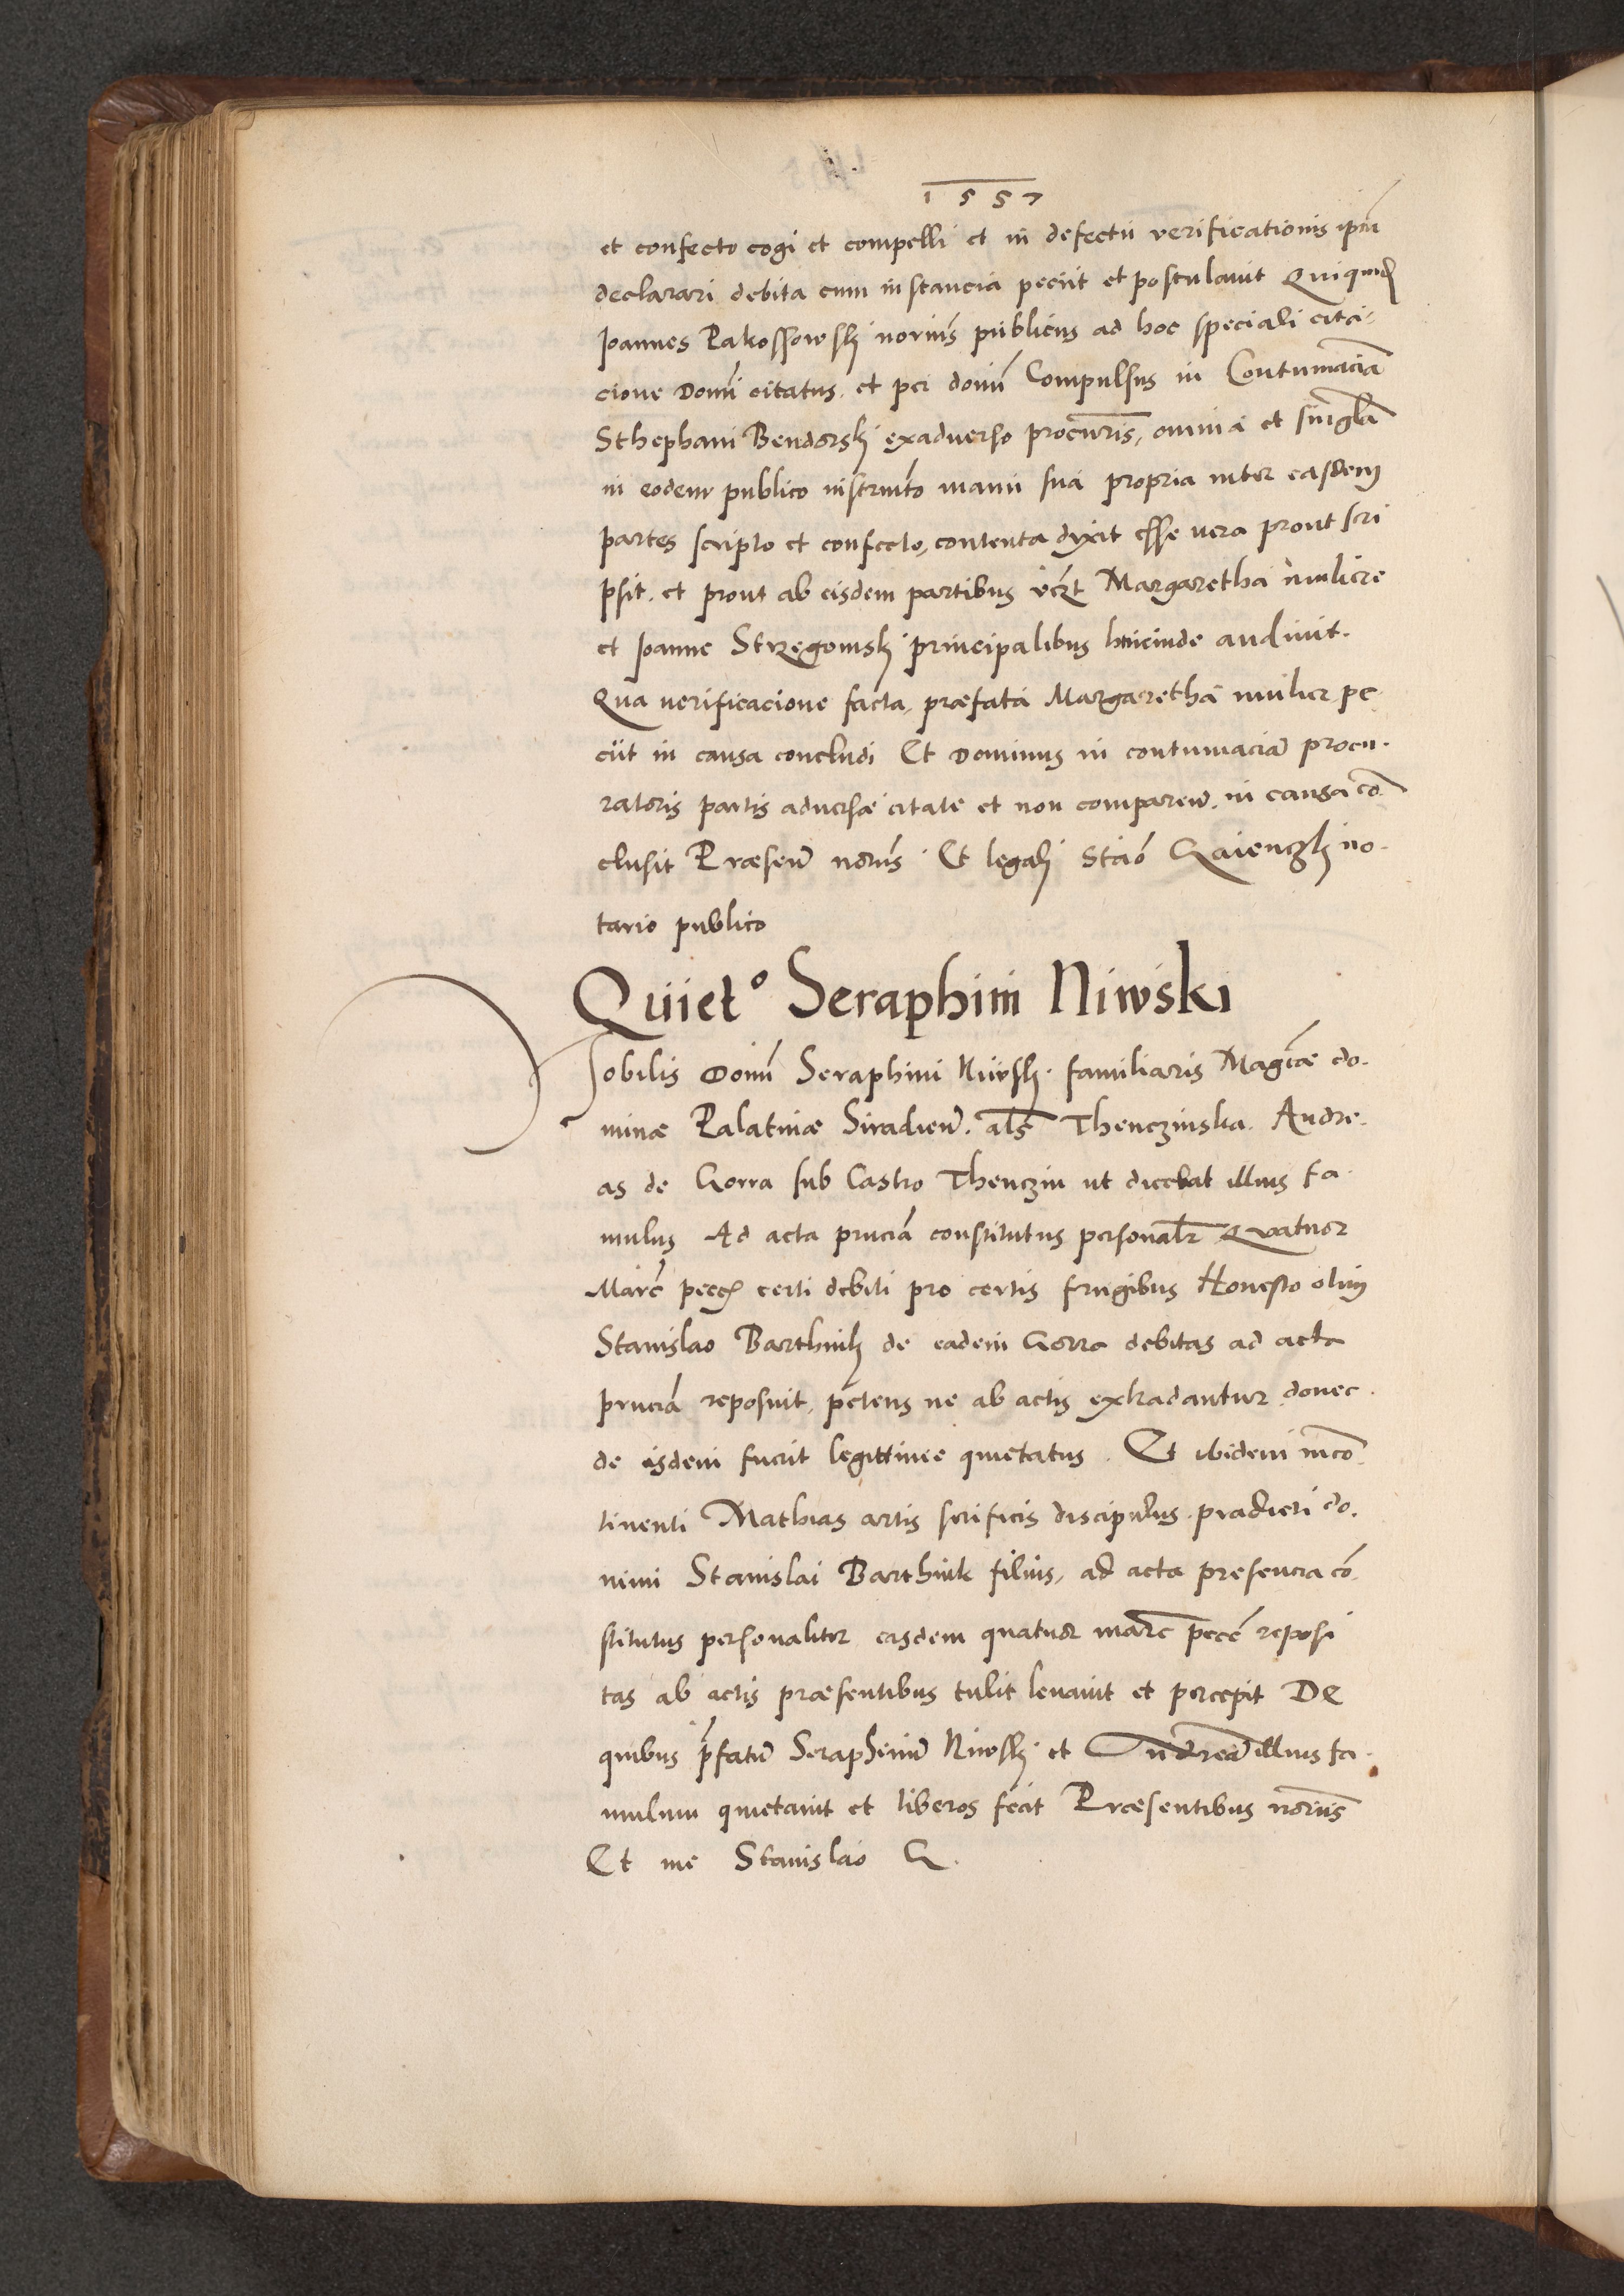 1557
et confecto cogi et compelli et in defectu verificationis ipm̄
declarari debita cum instancia peciit et postulavit Quiquid[em]
Joannes Rakossowsky norius publicus ad hoc speciali cita-
cione Domi citatus. et per domū Compulsus in Contumaciā
Sthephani Bendorsky exadverso procuris, omnia et singlā
in eodem publico instrumto manu sua propria inter easdem
partes scripto et confecto, contenta dixit esse vera prout scri
psit. et prout ab eisdem partibus vczt Margaretha muliere
et Joanne Strzegomsky principalibus hincinde audivit.
Qua verificacione facta, præfata Margaretha mulier pe-
ciit in causa concludi Et Dominus in contumaciā procu-
ratoris partis adversæ citate et non comparen. in causa cō
clusit Præsen noriis Et legali Stao Gaienczky no-
tario publico
Quiet° Seraphini Niwski
Nobilis Domi Seraphini Niwsky familiaris Magcæ do-
minæ Palatinæ Siradien. als Thenczinska. Andre-
as de Gorra sub Castro Thenczin ut dicebat illius fa-
mulus Ad acta prnciā constitutus personalr Quatuor
Marc pecc certi debiti pro certis frugibus Honesto olim
Stanislao Barthnik de eadem Gorra debitas ad acta
prnciā reposuit, petens ne ab actis extradantur donec
de iisdem fuerit legittime quietatus. Et ibidem incō
tinenti Mathias artis serificis discipulus prædicti do-
mini Stanislai Barthnik filius, ad acta presencia cō
stitutus personaliter easdem quatuor marc pecc reposi
tas ab actis præsentibus tulit levavit et percepit De
quibus p̄fatū Seraphinū Niwsky et Andreā illius fa-
mulum quietavit et liberos fecit Præsentibus noriis
Et me Stanislao G.